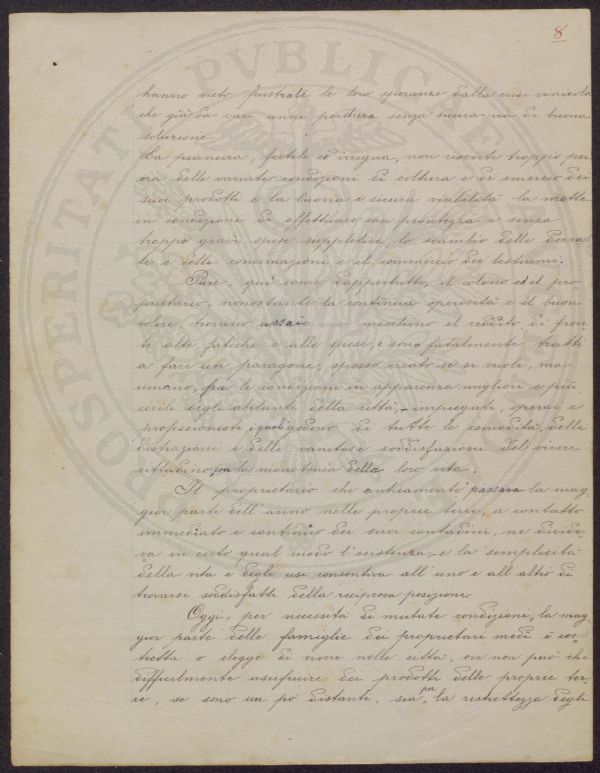 8
hanno visto frustrate le loro speranze dalla crisi vinicola
che già da vari anni perdura senza sicura via di buona
soluzione.
La pianura, fertile ed irrigua, non risente troppo per
ora delle variate condizioni di coltura e di smercio dei
suoi prodotti e la buona e sicura viabilità la mette
in condizione di effettuare con prontezza e senza
troppo gravi spese suppletive, lo scambio delle derra
te e delle concimazioni e il commercio dei bestiami.
Pure, qui come dappertutto, il colono ed il pro
prietario, nonostante la continua operosità e il buon
volere, trovano assai meschino il reddito di fron
te alle fatiche e alle spese, e sono fatalmente tratti
a fare un paragone, spesso errato se si vuole, ma
umano, fra le condizioni in apparenza migliori e più
civili degli abitanti della città, - impiegati, operai e
professionisti, i quali godono di tutte le comodità, delle
distrazioni e delle vanitose soddisfazioni del vivere
cittadino, con la monotonia della loro vita.
Il proprietario che anticamente passava la mag
gior parte dell'anno nelle proprie terre, a contatto
immediato e continuo dei suoi contadini, ne divide-
va in certo qual modo l'esistenza, e la semplicità
della vita e degli usi consentiva all'uno e all'altro di
trovarsi soddisfatti della reciproca posizione.
Oggi, per necessità di mutate condizioni, la mag
gior parte delle famiglie dei proprietari medi è cos=
tretta o elegge di vivere nelle città, ove non può che
difficilmente usufruire dei prodotti delle proprie ter-
re, se sono un pò distanti, sia per la ristrettezza degli
PROSPERITATI PVBLICAE